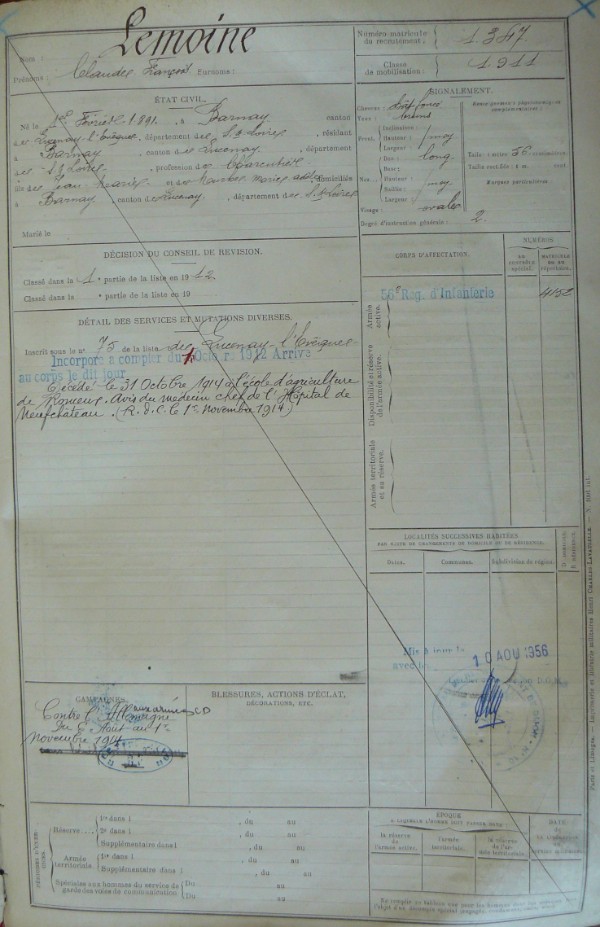 Lemoine
Nom :
Prénoms : Claude François Surnoms :
Numéro matricule du recrutement : 1347
Classe de mobilisation : 1911
ÉTAT CIVIL.
Né le 1er Février 1891, à Barnay, canton
de Lucenay-l'Évêque, département de S. & Loire, résidant
à Barnay, canton de Lucenay, département
de S. & Loire, profession de
fils de Jean Marie et de domicilié
à Barnay, canton de Lucenay, département de S. & Loire
Marié le
SIGNALEMENT.
Cheveux :
Yeux :
Front. Inclinaison :
Hauteur : moy
Largeur :
Nez. Dos : long
Base :
Hauteur :
Saillie : moy
Largeur :
Visage : ovale
Renseignements physionomiques complémentaires :
Taille : 1 mètre 56 centimètres.
Taille rectifiée : 1 m. cent.
Marques particulières :
Degré d'instruction générale : 2
DÉCISION DU CONSEIL DE REVISION.
Classé dans la 1e partie de la liste en 1912
Classé dans la e partie de la liste en 19
DÉTAIL DES SERVICES ET MUTATIONS DIVERSES.
Inscrit sous le n° 75 de la liste de Lucenay-l'Évêque
Incorporé à compter du Octobre 1912 Arrivé
au corps le dit jour
Décédé le 31 Octobre 1914 à l'école d'agriculture
de . Avis du médecin chef de l'Hôpital de
Neufchâteau. (R. d. C. le 1er Novembre 1914)
CORPS D'AFFECTATION.
NUMÉROS
AU CONTRÔLE SPÉCIAL.
MATRICULES OU AU RÉPERTOIRE.
Armée active.
56e Rég. d'Infanterie
Disponibilité et réserve de l'armée active.
Armée territoriale et sa réserve.
LOCALITÉS SUCCESSIVES HABITÉES
PAR SUITE DE CHANGEMENTS DE DOMICILE OU DE RÉSIDENCE.
Dates.
Communes.
Subdivisions de région.
D. domicile.
R. résidence.
10 AOU 1956
CAMPAGNES.
Contre l'Allemagne
aux armées CD
Du Août au 1er
Novembre 1914
BLESSURES, ACTIONS D'ÉCLAT,
DÉCORATIONS, ETC.
PÉRIODES D'EXERCICES
Réserve
1re dans l , du au
2e dans l , du au
Supplémentaire dans l , du au
Armée territoriale
1re dans l , du au
Supplémentaire dans l , du au
Spéciales aux hommes du service de garde des voies de communication
Du au
Du au
ÉPOQUE
À LAQUELLE L'HOMME DOIT PASSER DANS :
la réserve de l'armée active.
l'armée territoriale.
la réserve de l'armée territoriale.
DATE